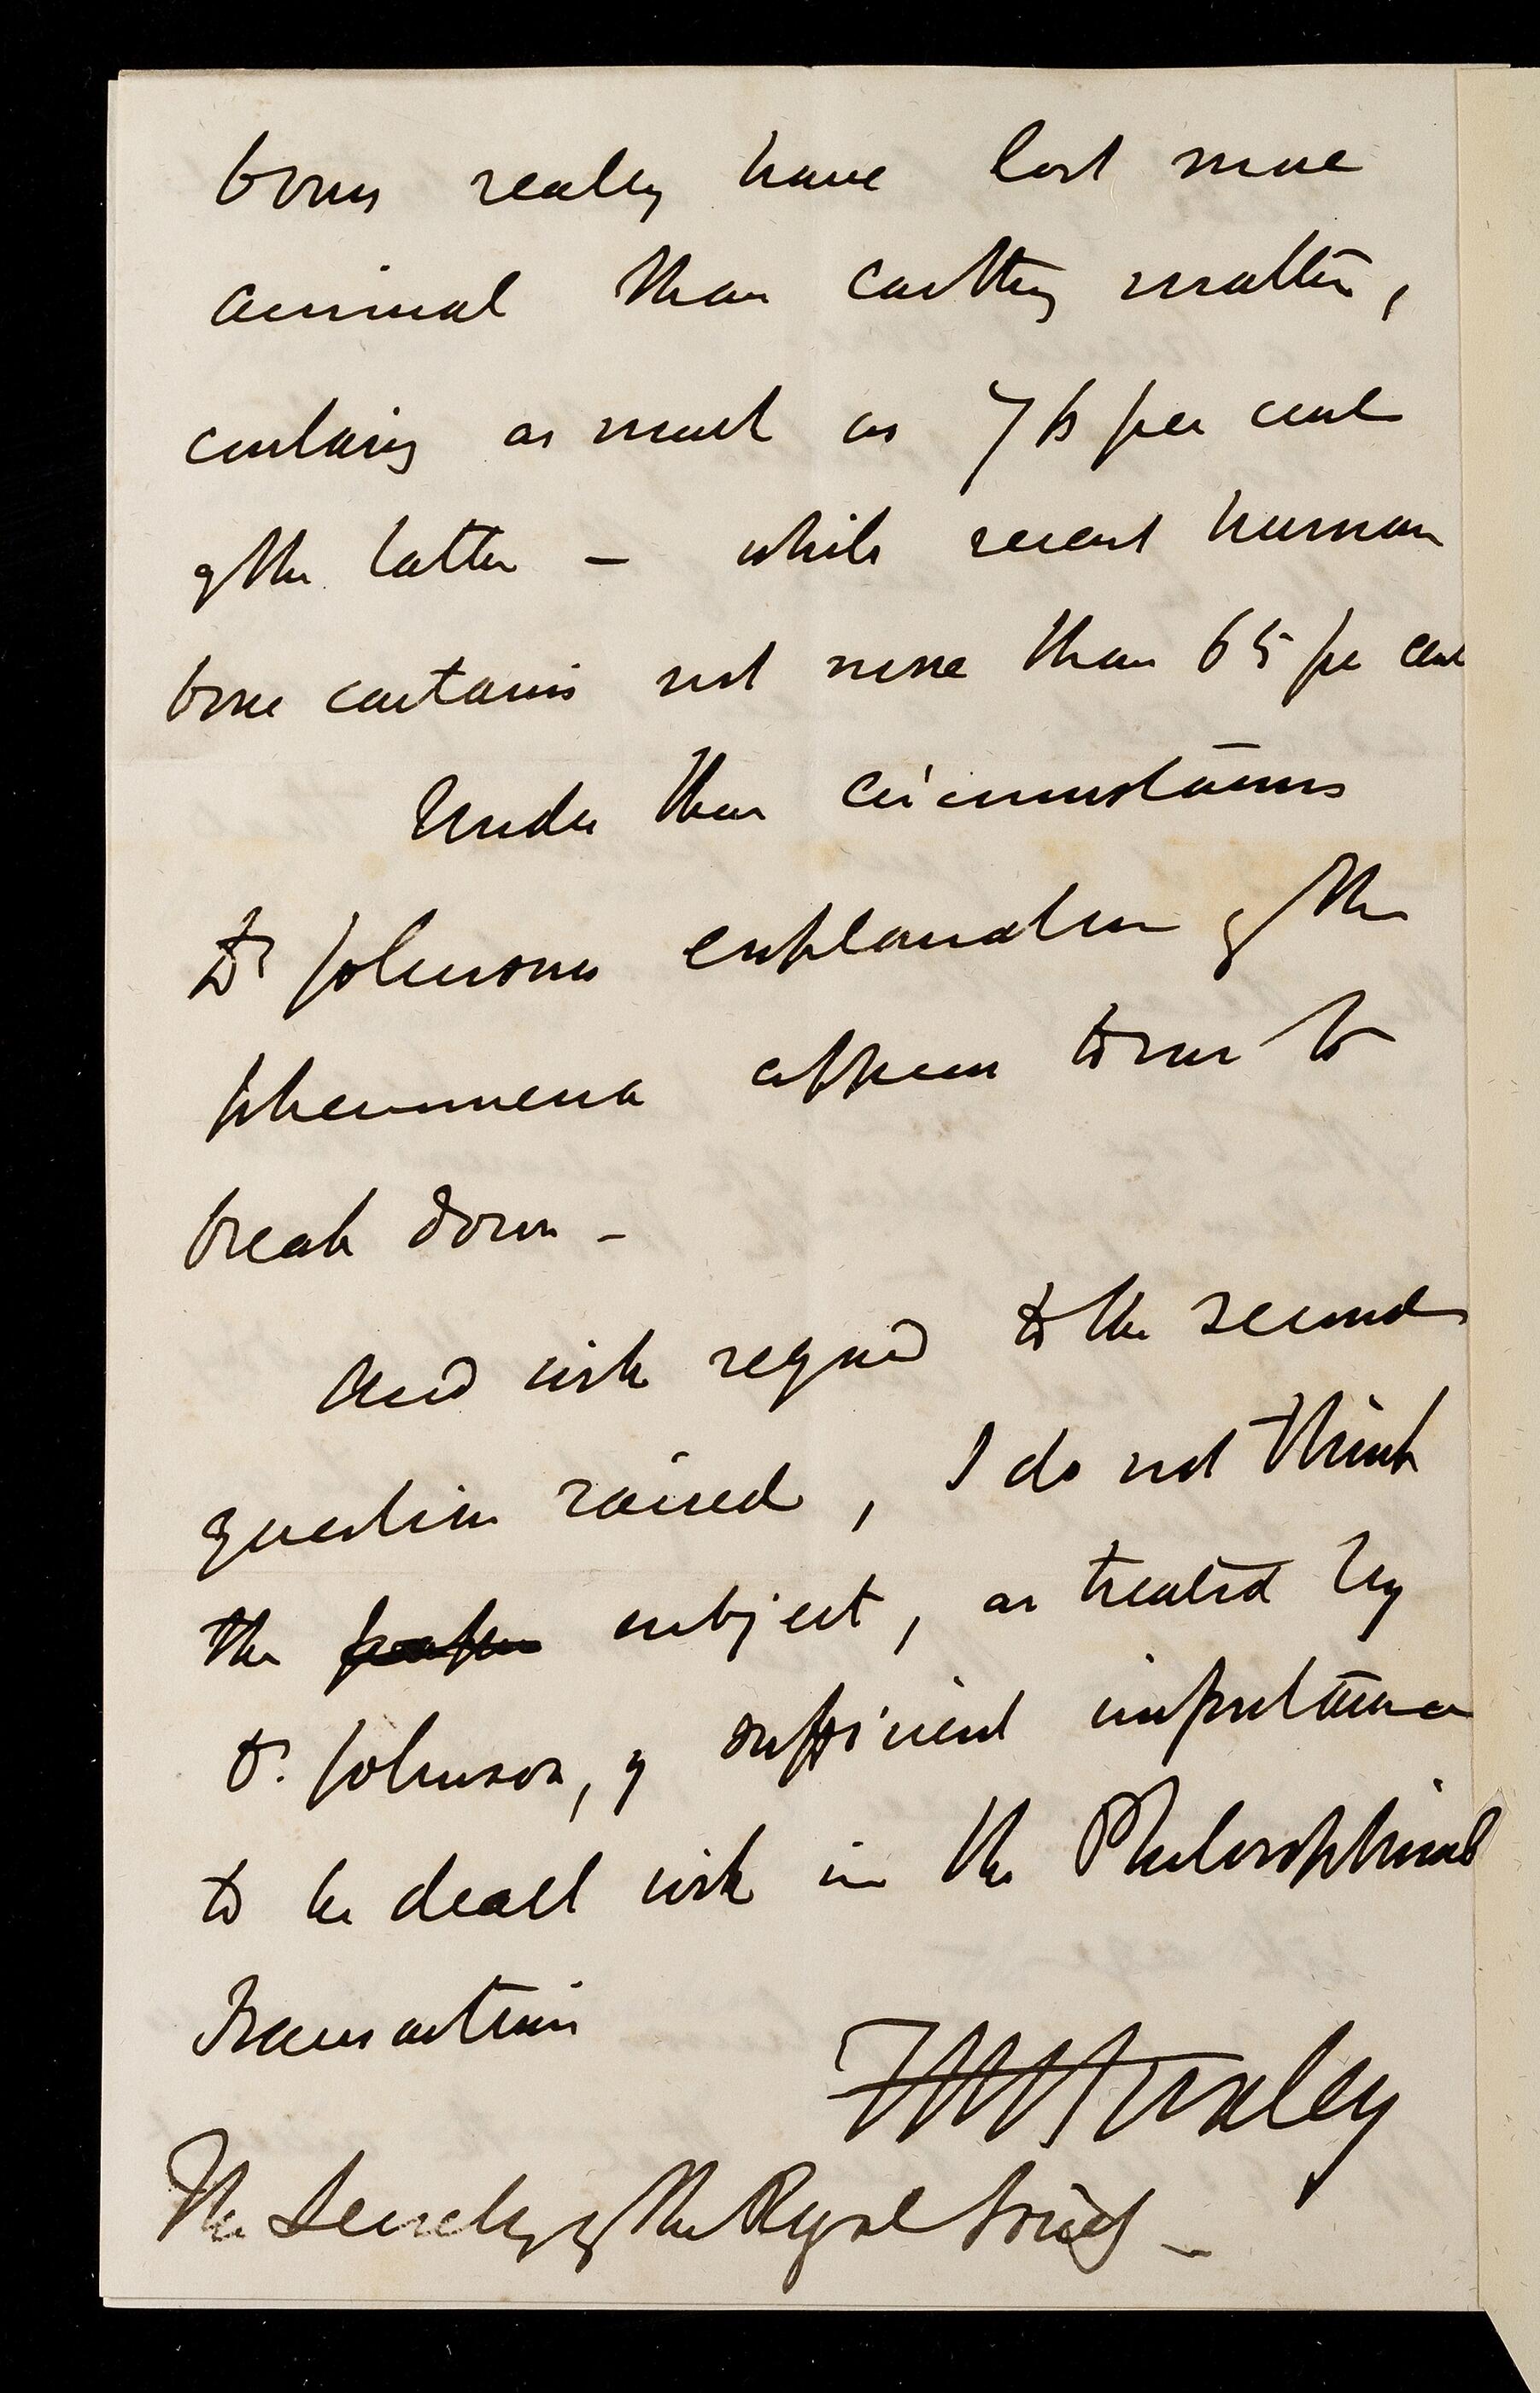 bones really have lost more
animal than earthy matter,
containing as much as 76 per cent
of the latter – while recent human
bone contains not more than 65 per cent
Under these circumstances
Dr Johnson's explanation of the
phenomena appears to me to
break down –
And with regard to the second
question raised, I do not think
the paper subject, as treated by
Dr. Johnson, of sufficient importance
to be dealt with in the Philosophical
Transactions
THHuxley
The Secretary of the Royal Society –